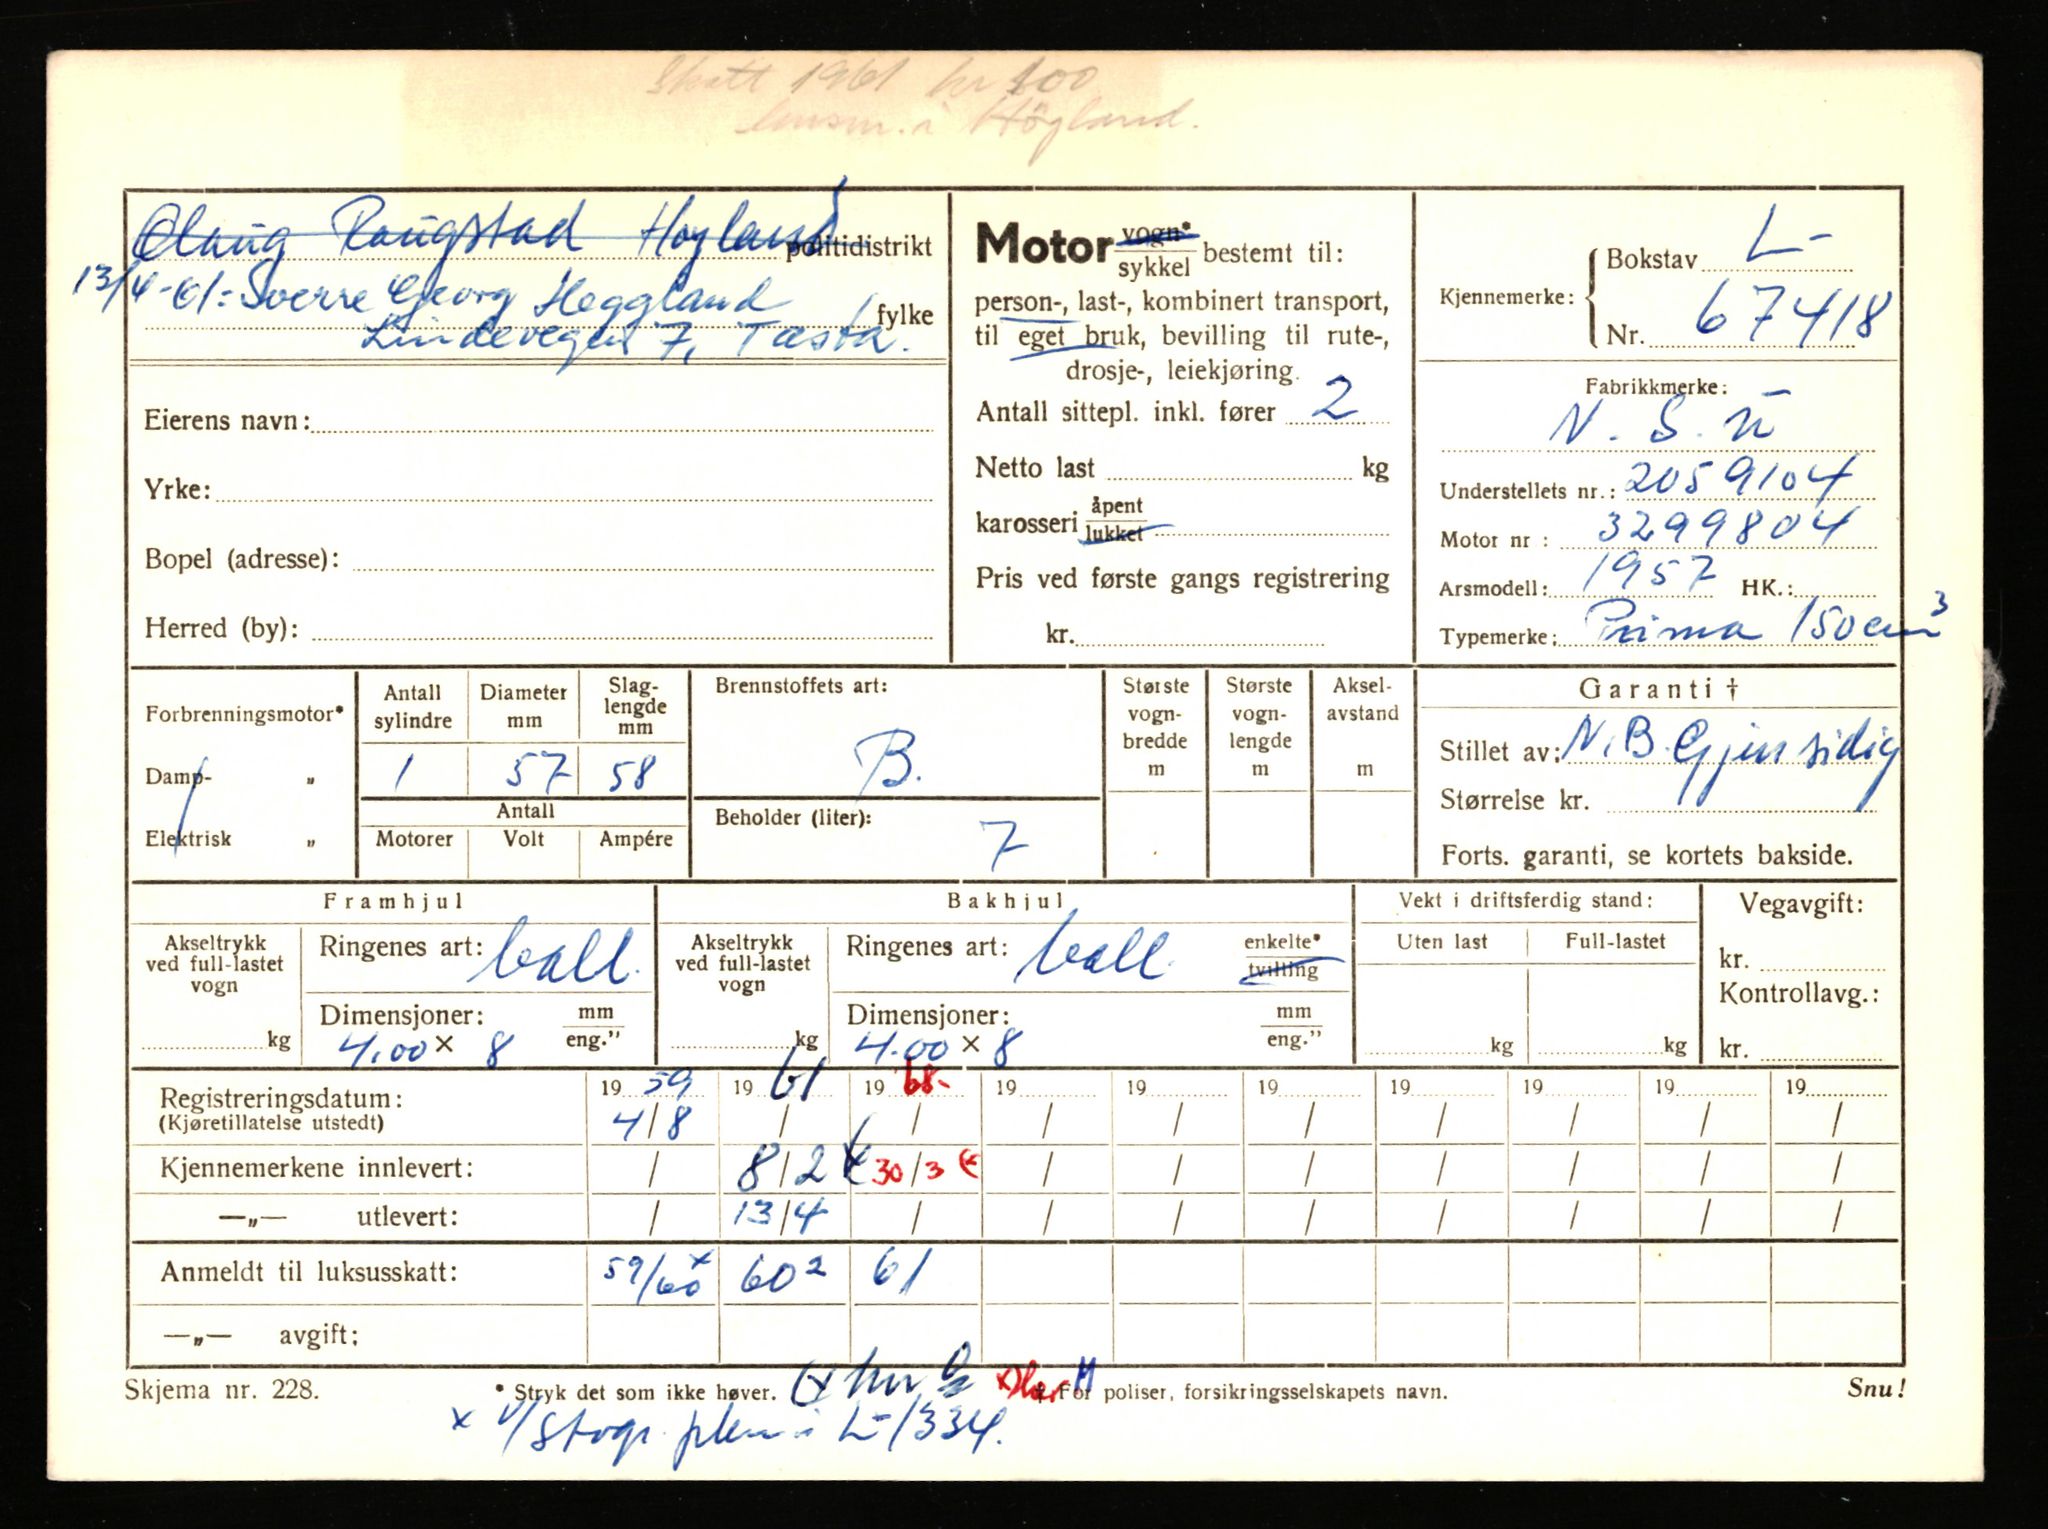 Skatt 1961 kr 100
lensm. i Högland.
Olaug Raugstad Hoyland politidistrikt
13/4-61: Sverre Georg Heggland
fylke
Lindevegen 7, Tasta.
Eierens navn:
Yrke:
Bopel (adresse):
Herred (by):
Motor vogn* sykkel bestemt til:
person-, last-, kombinert transport,
til eget bruk, bevilling til rute-,
drosje-, leiekjøring.
Antall sittepl. inkl. fører 2
Netto last kg
karosseri åpent lukket
Pris ved første gangs registrering
kr.
Kjennemerke: Bokstav L-
Nr. 67418
Fabrikkmerke:
N.S.U
Understellets nr.: 2059104
Motor nr : 3299804
Arsmodell: 1957 HK.:
Typemerke: Prima 150 cm3
Forbrenningsmotor*
Damp- „
Elektrisk „
Antall sylindre Diameter mm Slaglengde mm
1 57 58
Antall
Motorer Volt Ampére
Brennstoffets art:
B.
Beholder (liter):
7
Største vognbredde m
Største vognlengde m
Akselavstand m
Garanti †
Stillet av: N.B. Gjensidig
Størrelse kr.
Forts. garanti, se kortets bakside.
Framhjul
Akseltrykk ved full-lastet vogn
kg
Ringenes art: ball.
Dimensjoner: mm eng."
4.00 × 8
Bakhjul
Akseltrykk ved full-lastet vogn
kg
Ringenes art: ball. enkelte* tvilling
Dimensjoner: mm eng."
4.00 × 8
Vekt i driftsferdig stand:
Uten last Full-lastet
kg kg
Vegavgift:
kr.
Kontrollavg.:
kr.
Registreringsdatum: 19 59 19 61 19 68- 19 19 19 19 19 19 19
(Kjøretillatelse utstedt) 4/8 / / / / / / / / /
Kjennemerkene innlevert: / 8/2 x 30/3 x / / / / / / /
—„— utlevert: / 13/4 / / / / / / / /
Anmeldt til luksusskatt: 59/60 x 60 2 61
—„— avgift:
Skjema nr. 228.
* Stryk det som ikke høver.
† For poliser, forsikringsselskapets navn.
Snu!
x V/Stogs. L-1334.